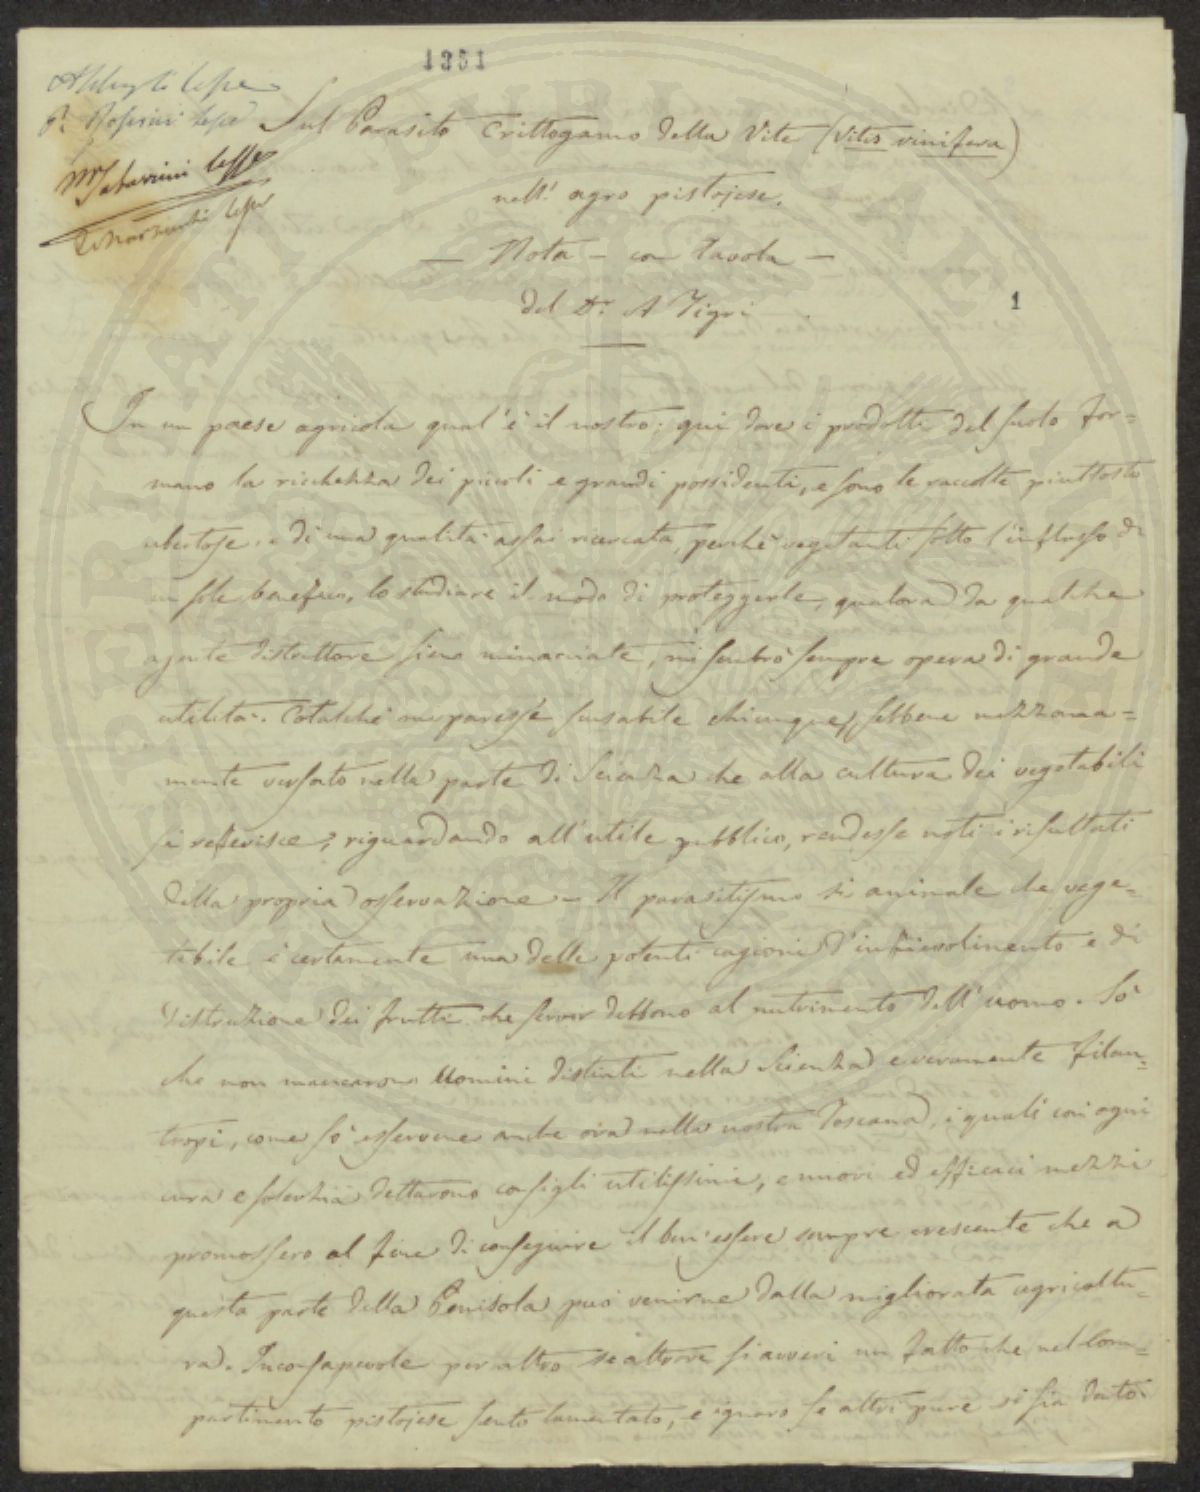 1351
P. Rossini lesse
Sul Parasito Crittogamo della Vite (Vitis vinifera)
nell' agro pistojese.
— Nota – con tavola —
del Dr. A Tigri
1
In un paese agricola qual'è il nostro; qui dove i prodotti del suolo for=
mano la ricchezza dei piccoli e grandi possidenti, e sono le raccolte piuttosto
ubertose, e di una qualità assai ricercata, perchè vegetanti sotto l'influsso di
un sole benefico, lo studiare il modo di proteggerle, qualora da qualche
agente distruttore sieno minacciate, mi sembrò sempre opera di grande
utilità. Cotalchè mi paresse scusabile chiunque, sebbene mezzana=
mente versato nella parte di Scienza che alla cultura dei vegetabili
si referisce, riguardando all'utile pubblico, rendesse noti i risultati
della propria osservazione – Il parasitismo sì animale che vege=
tabile è certamente una delle potenti cagioni d'infievolimento e di
distruzione dei frutti che servir debbono al nutrimento dell'uomo. Sò
che non mancarono Uomini distinti nella Scienza e veramente filan=
tropi, come sò esservene anche ora nella nostra Toscana, i quali con ogni
cura e solerzia dettarono consigli utilissimi, e nuovi ed efficaci mezzi
promossero al fine di conseguire il ben'essere sempre crescente che a
questa parte della Penisola può venirne dalla migliorata agricoltu=
ra. Inconsapevole per altro se altrove si avveri un fatto che nel Com=
partimento pistojese sento lamentato, e ignaro se altri pure si sia dato